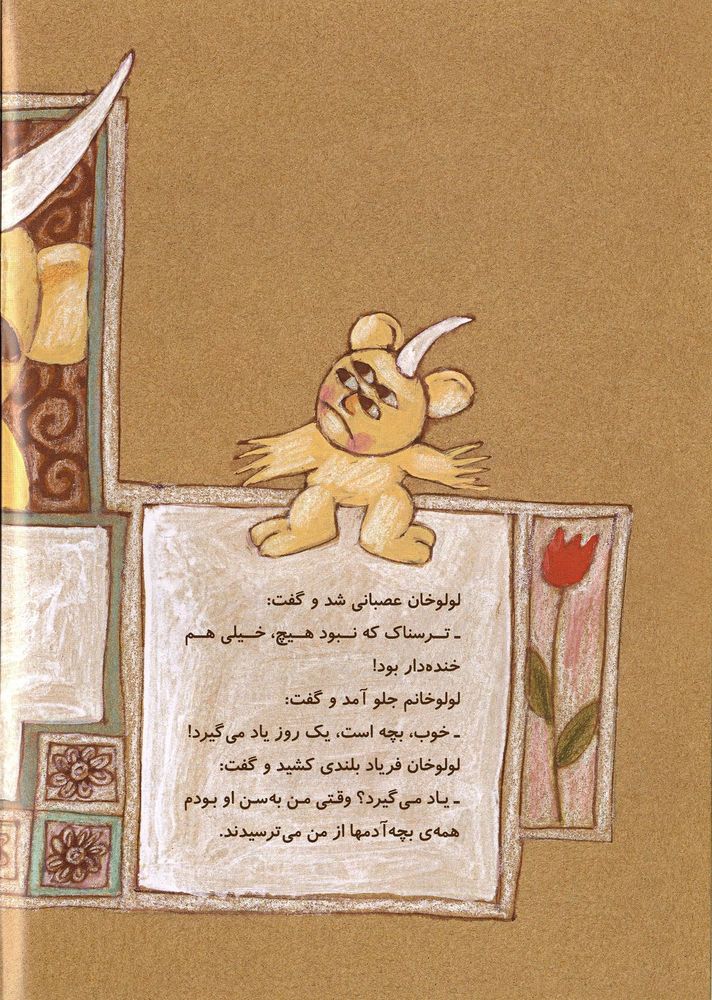 لولوخان عصبانی شد و گفت:
ـ تـرسناک که نـبود هیـچ، خـیلی هم
خنده‌دار بود!
لولوخانم جلو آمد و گفت:
ـ خوب، بچه است، یک روز یاد می‌گیرد!
لولوخان فریاد بلندی کشید و گفت:
ـ یـاد مـی‌گیرد؟ وقـتی مـن به‌سـن او بـودم
همه‌ی بچه‌آدمها از من می‌ترسیدند.